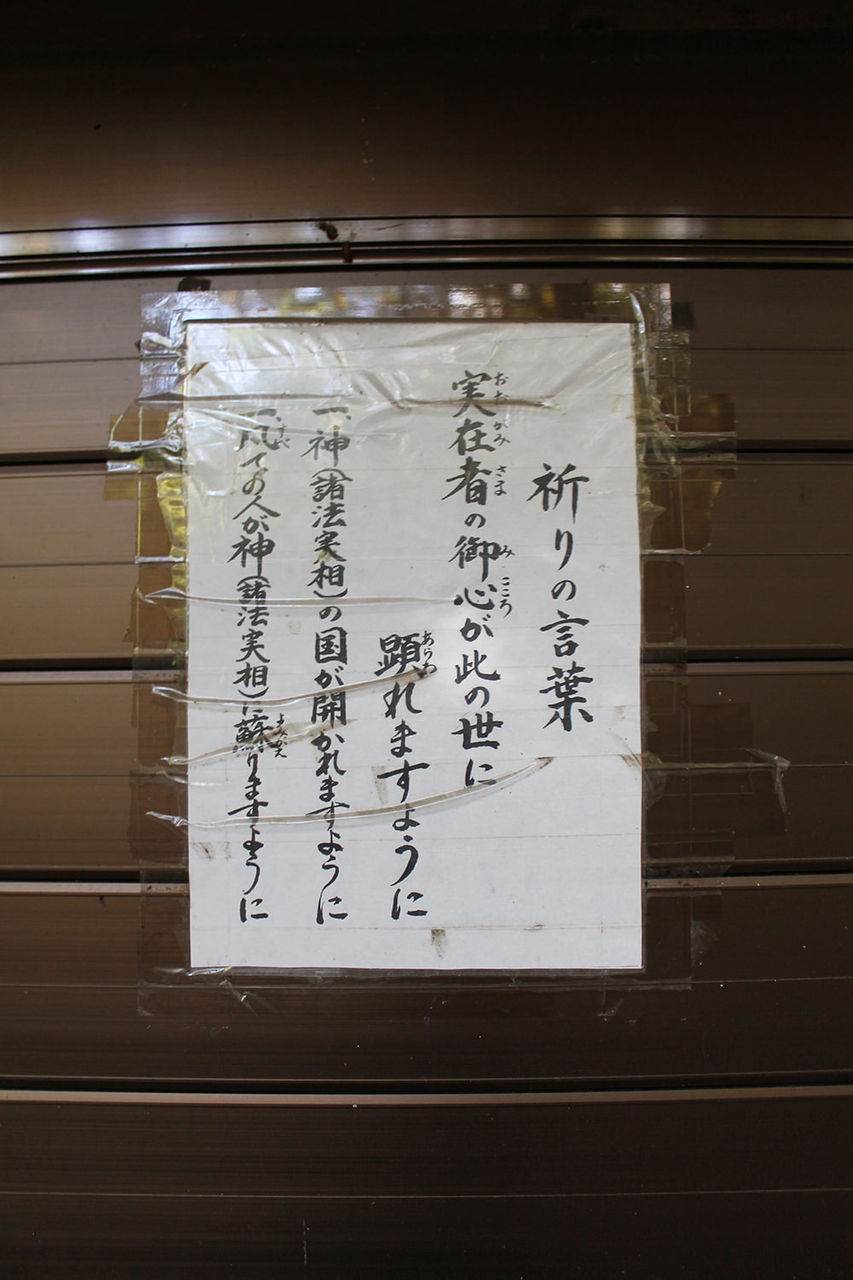 祈りの言葉
実在者の御心が此の世に
顕れますように
一、神(諸法実相)の国が開かれますように
一、凡ての人が神(諸法実相)に蘇りますように